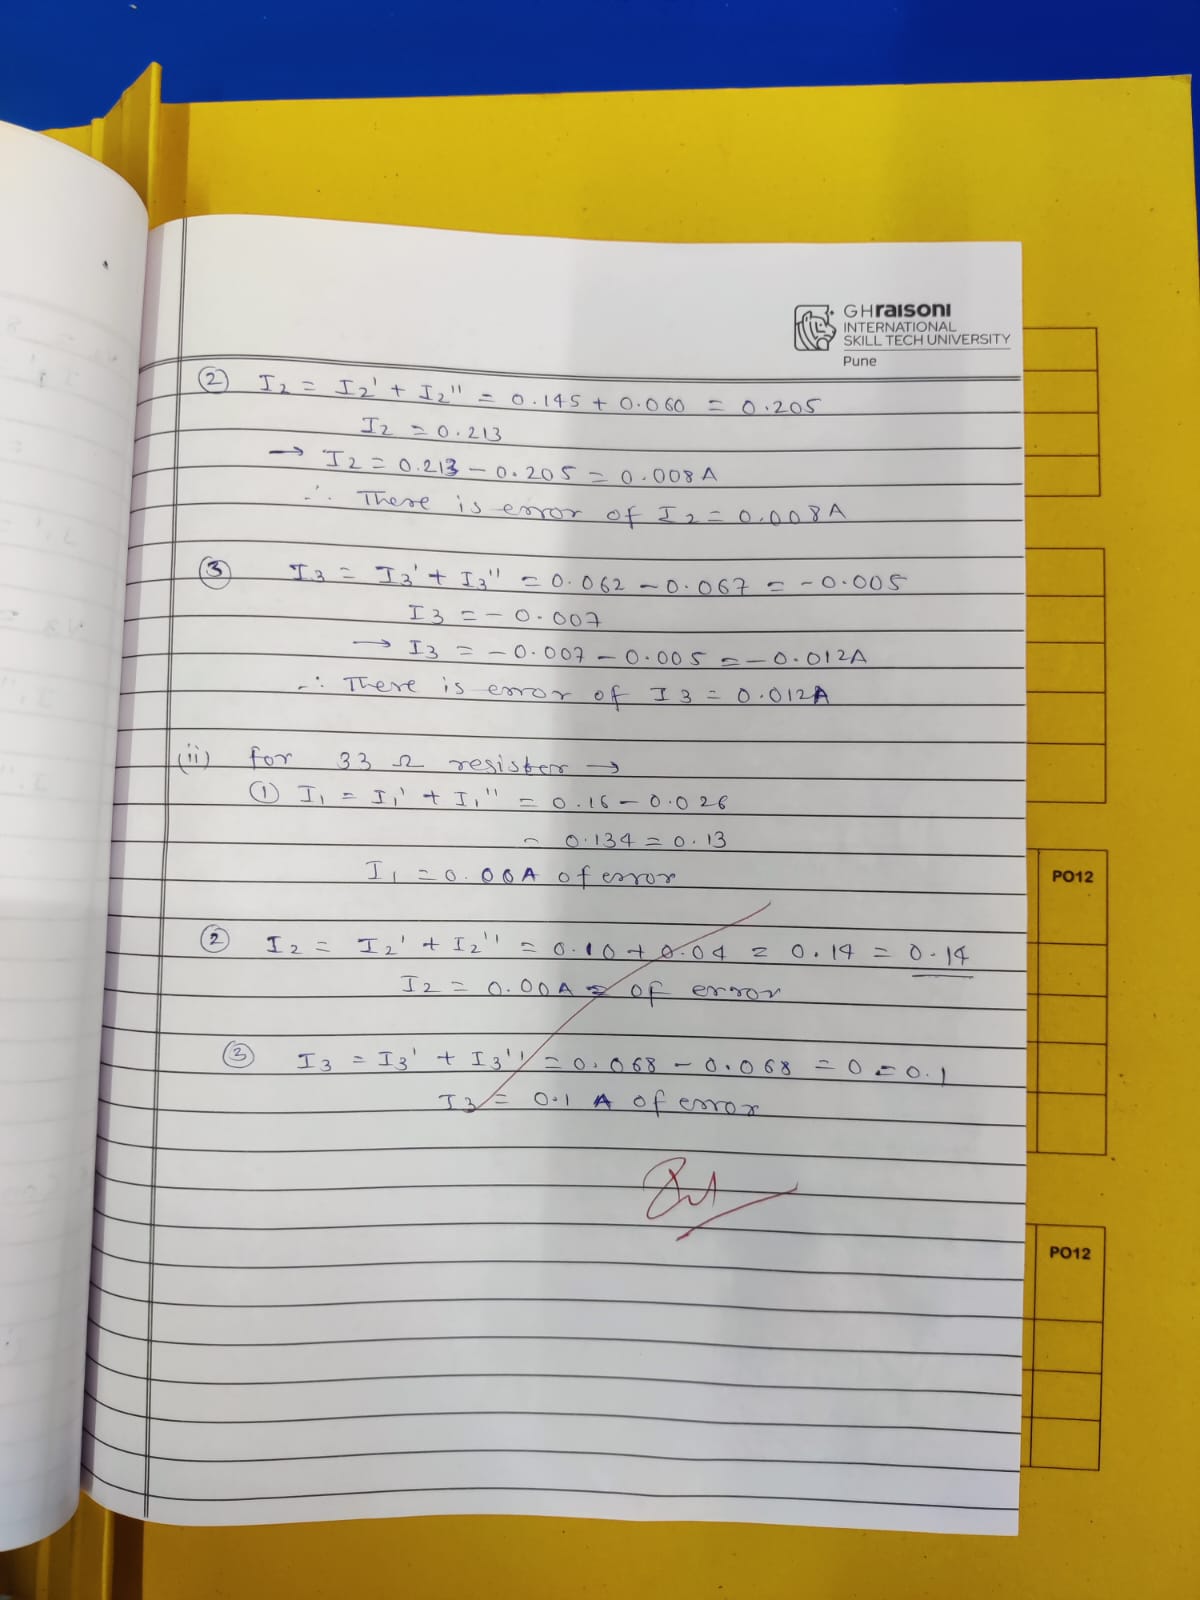 GHRAISONI
INTERNATIONAL
SKILL TECH UNIVERSITY
Pune
② I2 = I2' + I2'' = 0.145 + 0.060 = 0.205
I2 = 0.213
→ I2 = 0.213 - 0.205 = 0.008 A
∴ There is error of I2 = 0.008 A
③ I3 = I3' + I3'' = 0.062 - 0.067 = -0.005
I3 = -0.007
→ I3 = -0.007 - 0.005 = -0.012A
∴ There is error of I3 = 0.012A
(ii) for 33 Ω resister →
① I1 = I1' + I1'' = 0.16 - 0.026
= 0.134 = 0.13
I1 = 0.00A of error
② I2 = I2' + I2'' = 0.10 + 0.04 = 0.14 = 0.14
I2 = 0.00A = of error
③ I3 = I3' + I3'' = 0.068 - 0.068 = 0 = 0.1
I3 = 0.1 A of error
PO12
PO12